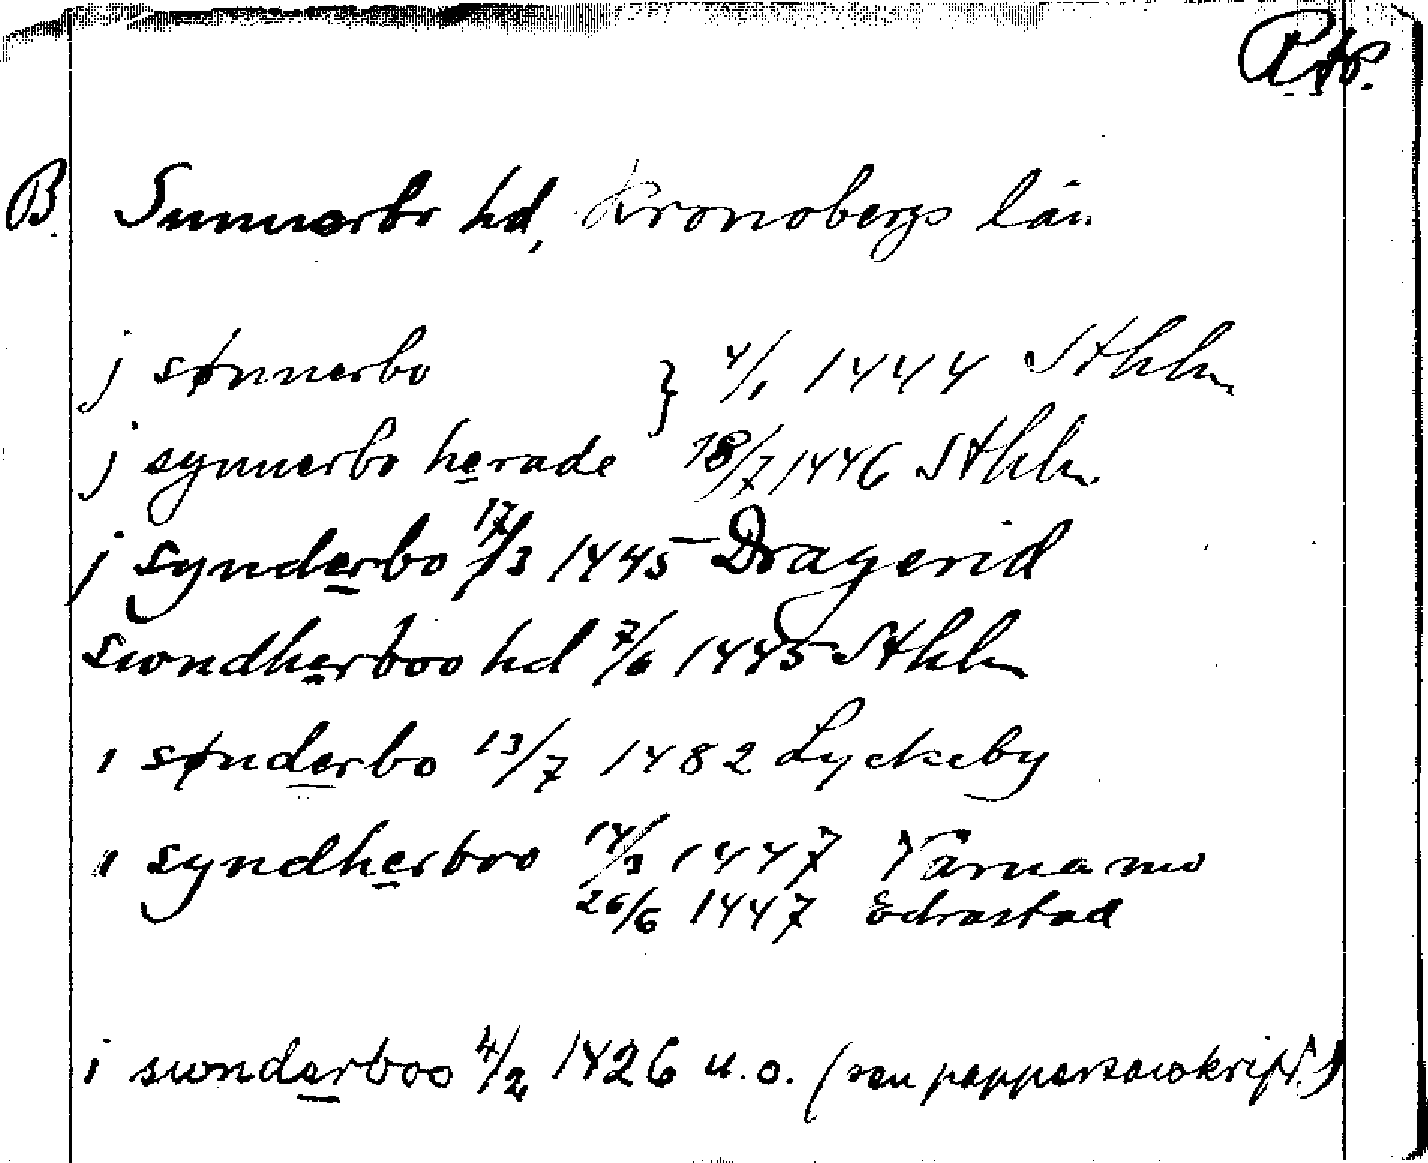 RAp.
B. Sunnerbo hd, Kronobergs län
j sønnerbo } 4/1 1444 Sthlm
j synnerbo herade 18/7 1446 Sthlm
j synderbo 17/3 1445 Dragerid
swndherboo hd 7/6 1445 Sthlm
i sønderbo 13/7 1482 Lyckeby
i syndherboo 14/3 1447 Värnamo
26/6 1447 Edrastad
i swnderboo 4/2 1426 u.o. (sen pappersavskrift.)